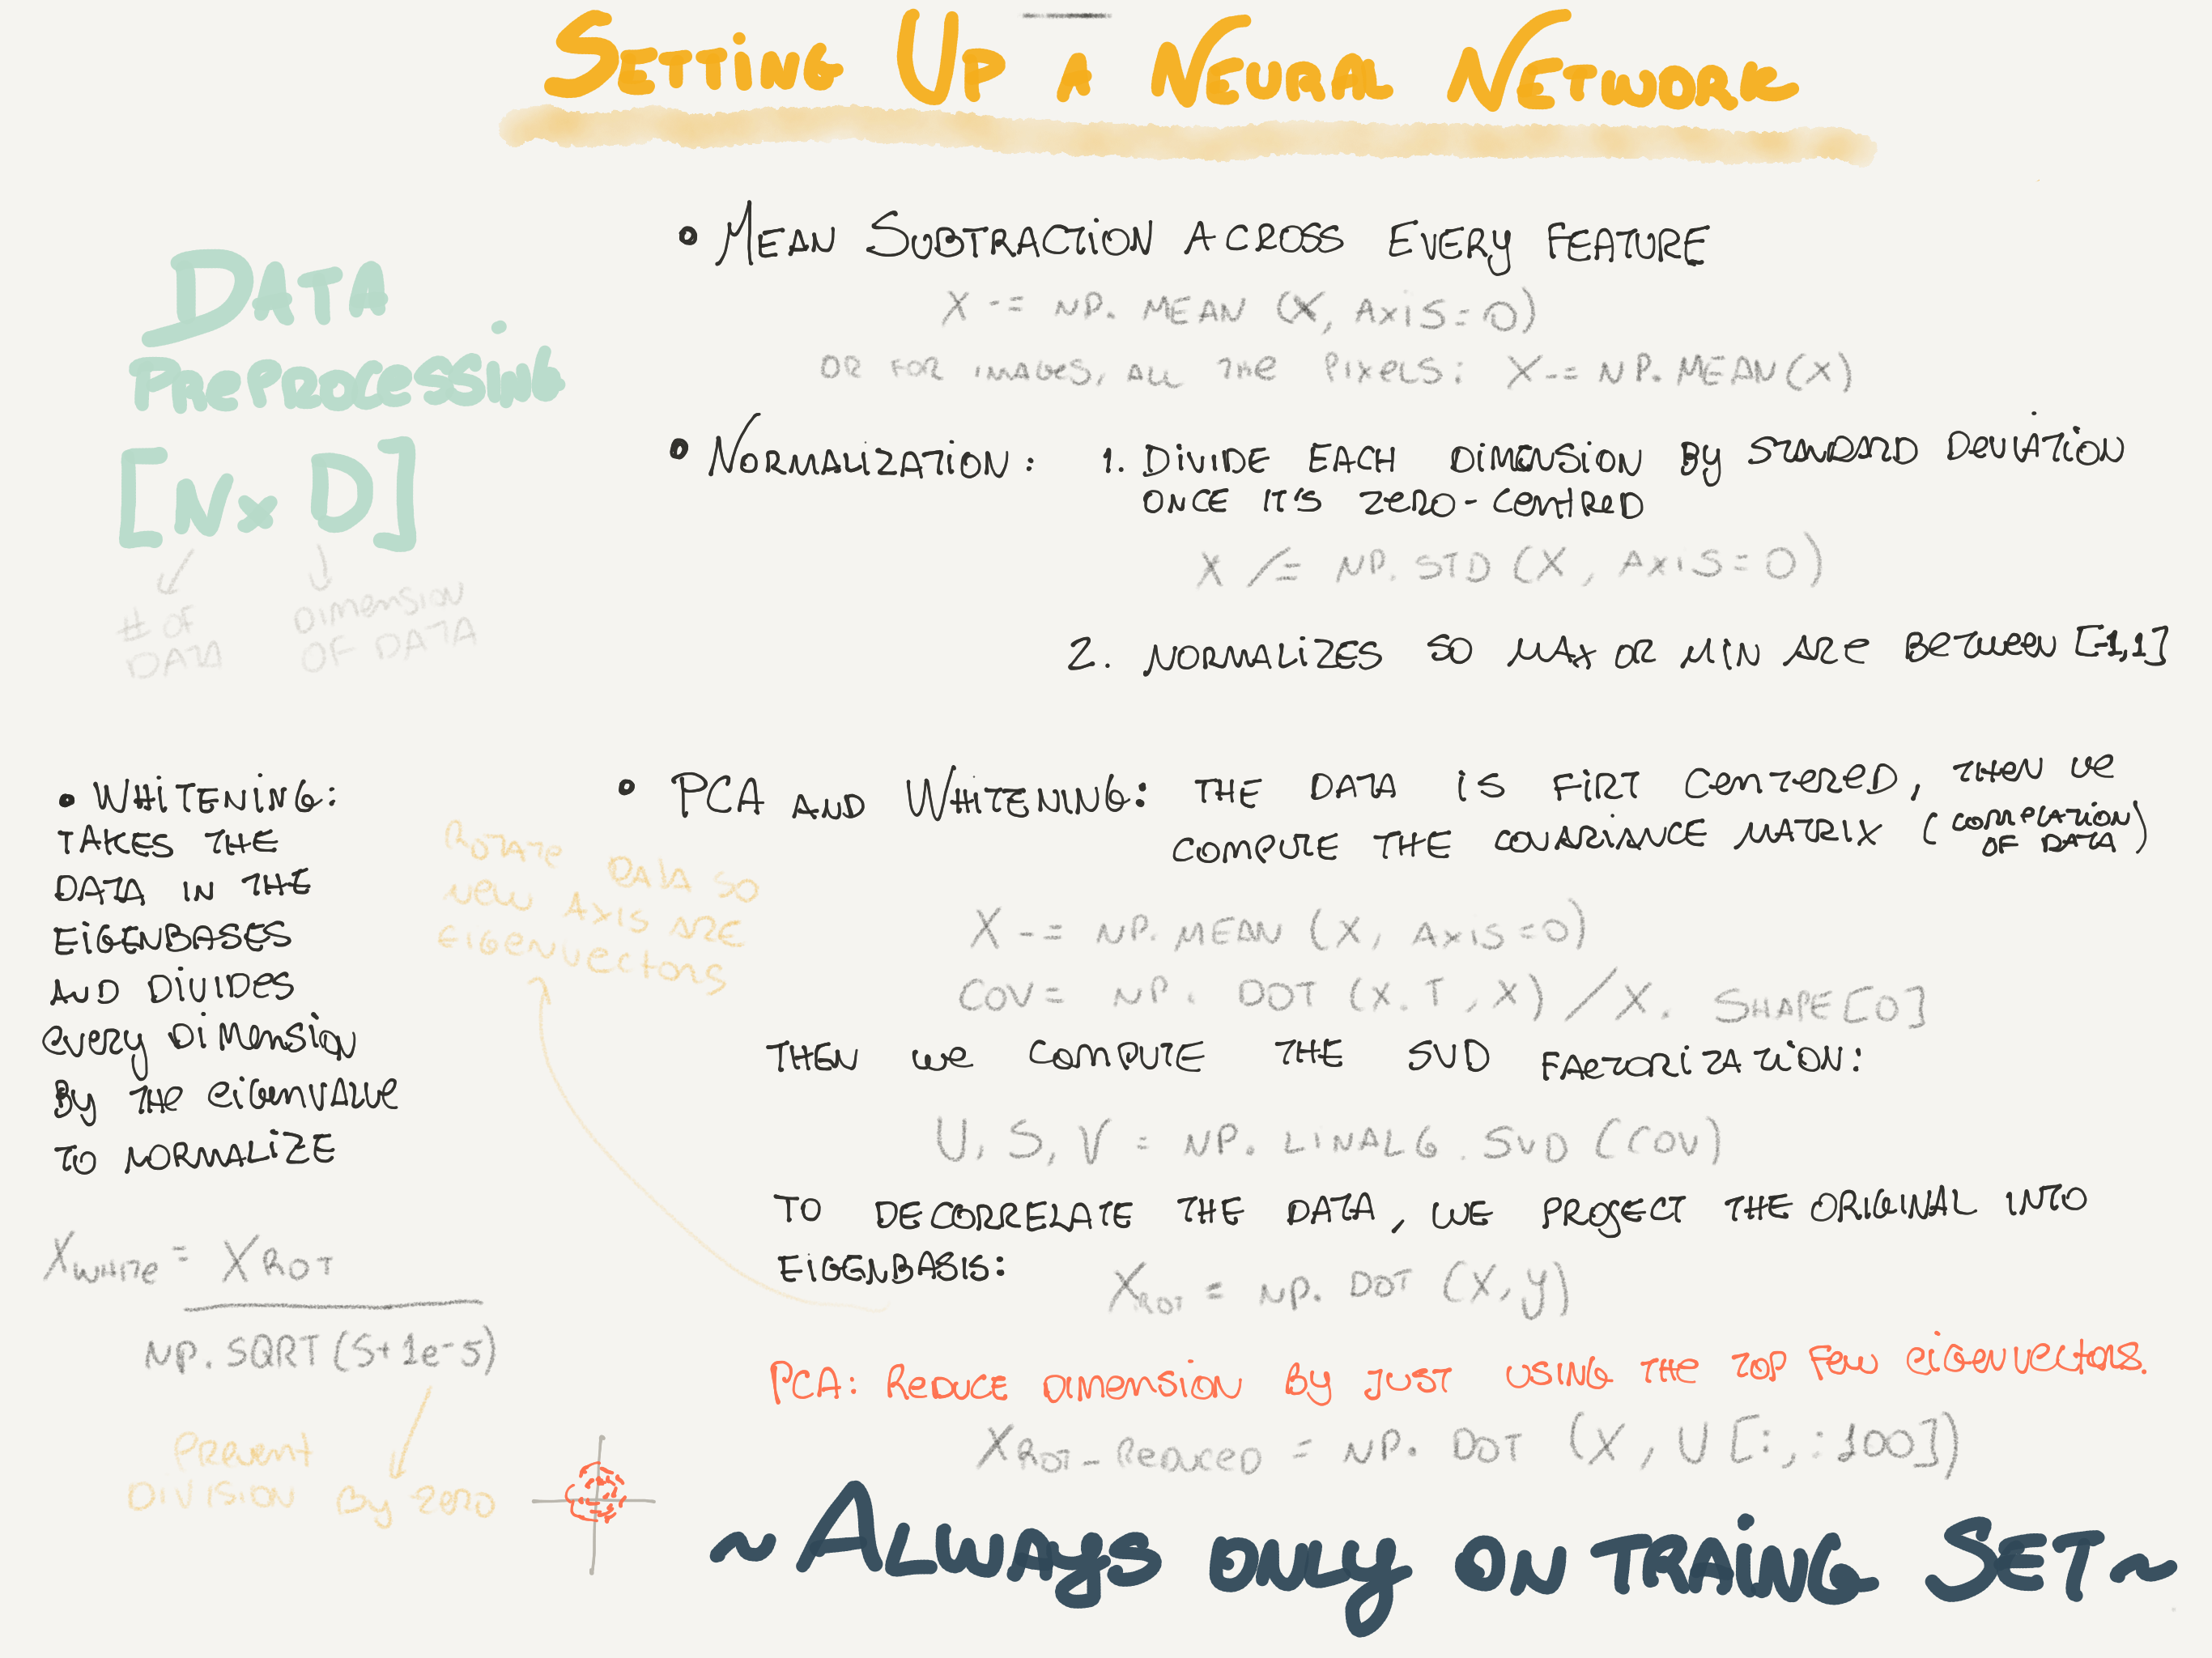 SETTING UP A NEURAL NETWORK
DATA
PREPROCESSING
[N x D]
# OF
DATA
DIMENSION
OF DATA
• MEAN SUBTRACTION ACROSS EVERY FEATURE
X -= NP. MEAN (X, AXIS=0)
OR FOR IMAGES, ALL THE PIXELS: X -= NP. MEAN(X)
• NORMALIZATION: 1. DIVIDE EACH DIMENSION BY STANDARD DEVIATION
ONCE IT'S ZERO-CENTRED
X /= NP. STD (X, AXIS=0)
2. NORMALIZES SO MAX OR MIN ARE BETWEEN [-1,1]
• WHITENING:
TAKES THE
DATA IN THE
EIGENBASES
AND DIVIDES
EVERY DIMENSION
BY THE EIGENVALUE
TO NORMALIZE
XWHITE = XROT
NP. SQRT (S+1e-5)
PREVENT
DIVISION BY ZERO
ROTATE DATA SO
NEW AXIS ARE
EIGENVECTORS
• PCA AND WHITENING: THE DATA IS FIRT CENTERED, THEN WE
COMPUTE THE COVARIANCE MATRIX (CORRELATION
OF DATA)
X -= NP. MEAN (X, AXIS=0)
COV = NP. DOT (X.T, X) / X. SHAPE[0]
THEN WE COMPUTE THE SVD FACTORIZATION:
U, S, V = NP. LINALG. SVD (COV)
TO DECORRELATE THE DATA, WE PROJECT THE ORIGINAL INTO
EIGENBASIS: XROT = NP. DOT (X, y)
PCA: REDUCE DIMENSION BY JUST USING THE TOP FEW EIGENVECTORS.
XROT_REDUCED = NP. DOT (X, U [:, :100])
~ ALWAYS ONLY ON TRAING SET ~